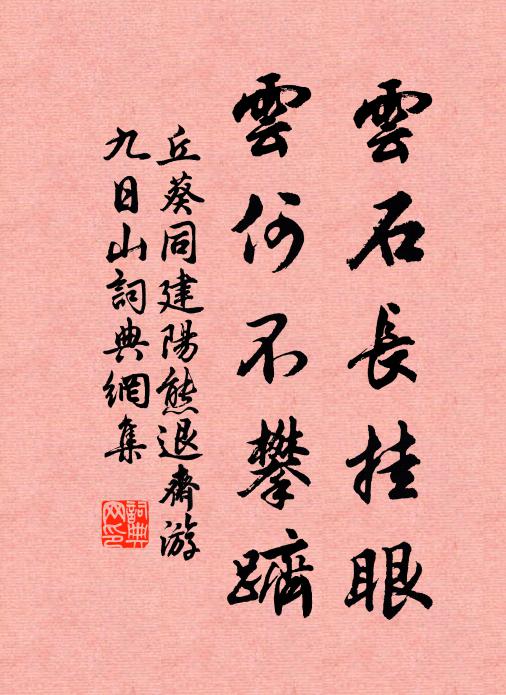 雲石長挂眼
雲何不攀躋
丘葵同建陽熊退齋游
九日山詞典網集
詞典網印